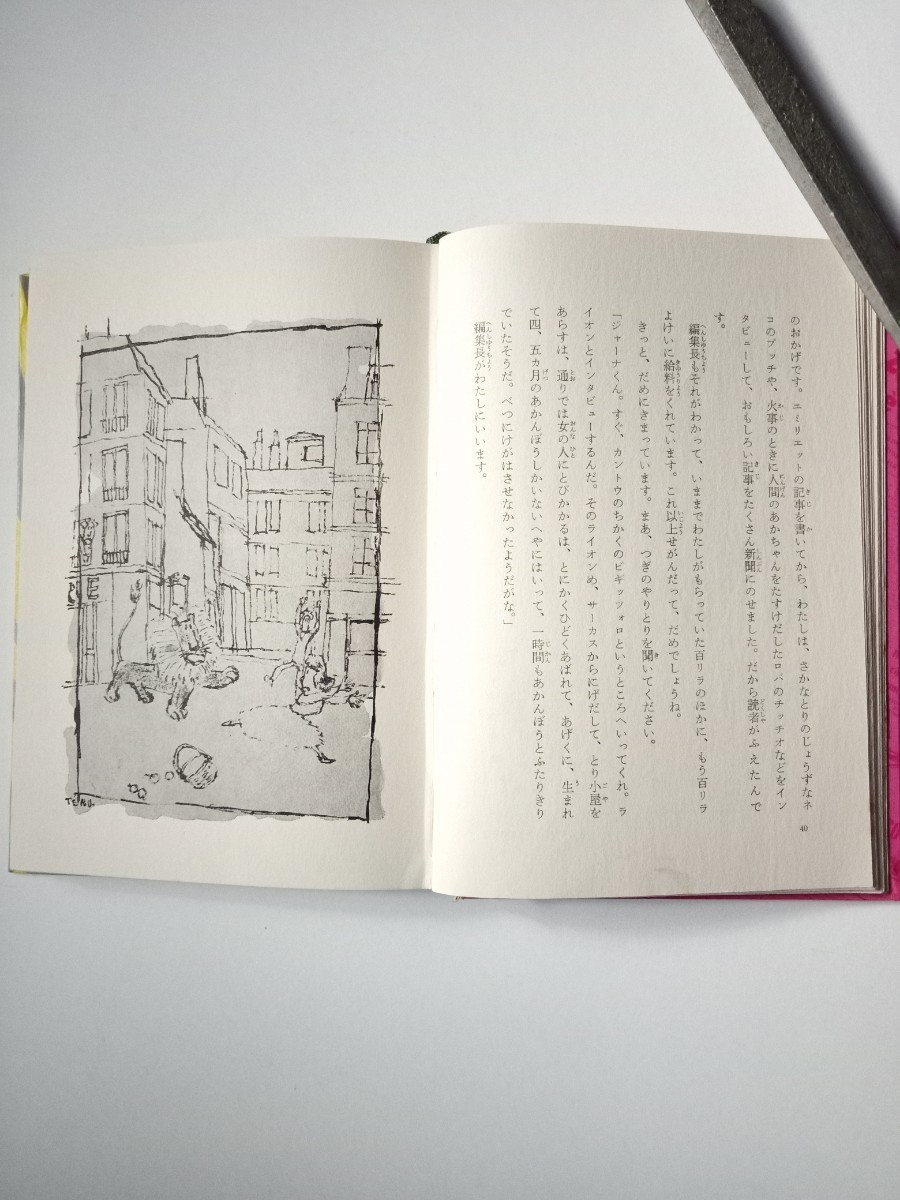 のおかげです。エミリエットの記事を書いてから、わたしは、さかなとりのじょうずなネ
コのプッチや、火事のときに人間のあかちゃんをたすけだしたロバのチッチオなどをイン
タビューして、おもしろい記事をたくさん新聞にのせました。だから読者がふえたんで
す。
編集長もそれがわかって、いままでわたしがもらっていた百リラのほかに、もう百リラ
よけいに給料をくれています。これ以上せがんだって、だめでしょうね。
きっと、だめにきまっています。まあ、つぎのやりとりを聞いてください。
「ジャーナくん。すぐ、カントウのちかくのビギッツォロというところへいってくれ。ラ
イオンとインタビューするんだ。そのライオンめ、サーカスからにげだして、とり小屋を
あらすは、通りでは女の人にとびかかるは、とにかくひどくあばれて、あげくに、生まれ
て四、五カ月のあかんぼうしかいないへやにはいって、一時間もあかんぼうとふたりきり
でいたそうだ。べつにけがはさせなかったようだがな。」
編集長がわたしにいいます。
40
TERU.